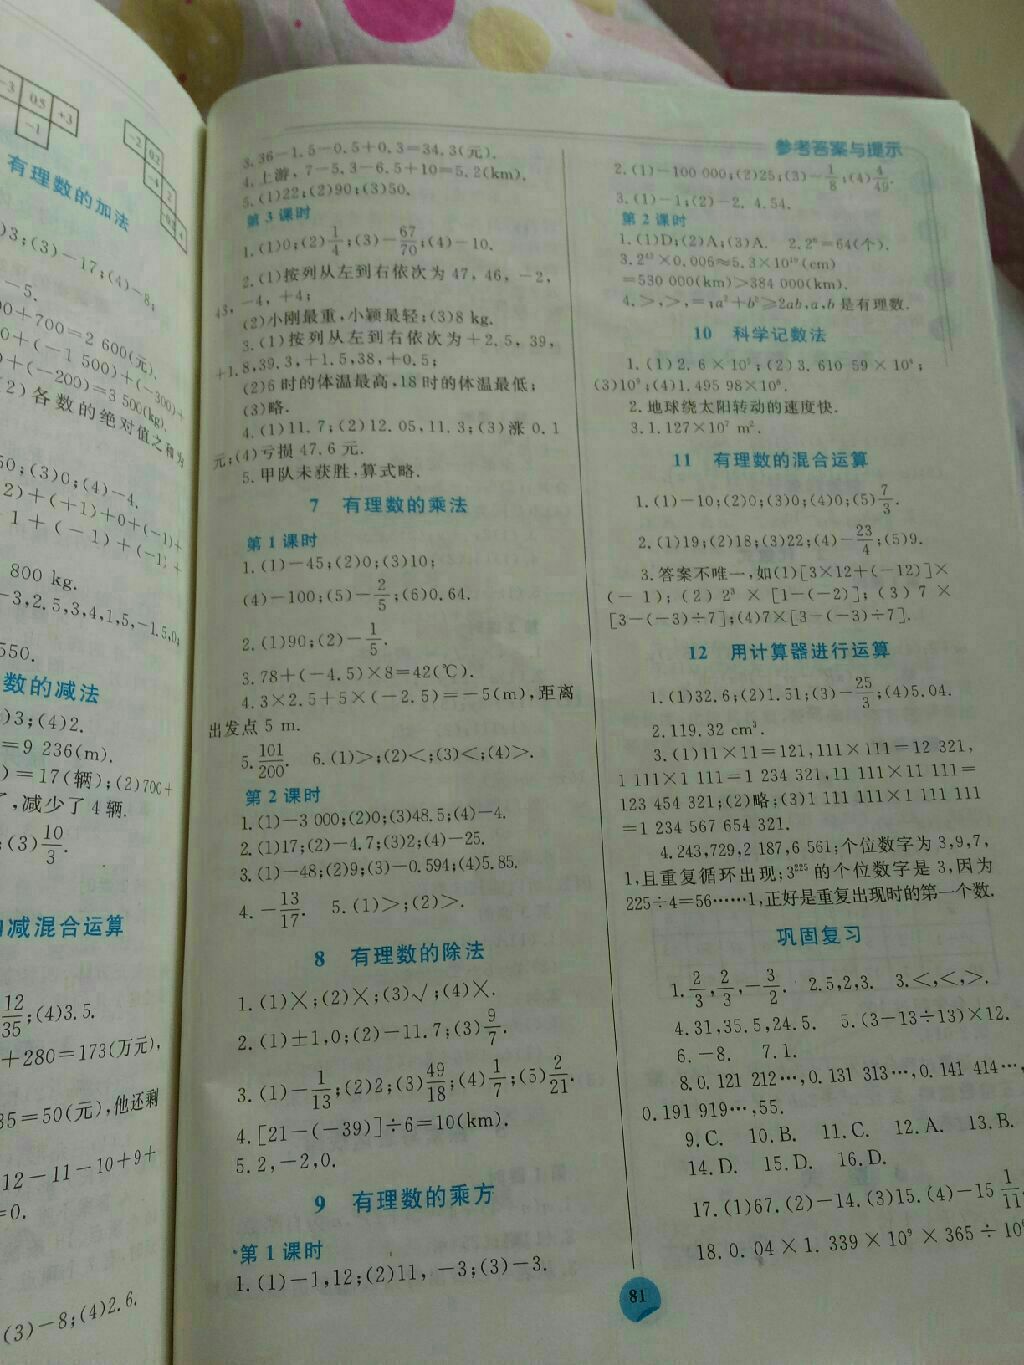 -3 0.5 +3
-1
-2 0.2
有理数的加法
)3;(3)-17;(4)-8;
-5.
00+700=2 600(元).
0+(-1 500)+(-300)+
+(-200)=3 500(kg).
2)各数的绝对值之和为
50;(3)0;(4)-4.
2)+(+1)+0+(-1)+
1+(-1)+(-1)+
800 kg.
-3,2.5,3,4,1,5,-1.5,0;
550.
数的减法
)3;(4)2.
=9 236(m).
)=17(辆);(2)700+
了,减少了4辆.
;(3)10/3.
减混合运算
12/35;(4)3.5.
+280=173(万元),
35=50(元),他还剩
12-11-10+9+
=0.
(3)-8;(4)2.6.
3.36-1.5-0.5+0.3=34.3(元).
4.上游,7-5.3-6.5+10=5.2(km).
5.(1)22;(2)90;(3)50.
第3课时
1.(1)0;(2)1/4;(3)-67/70;(4)-10.
2.(1)按列从左到右依次为47,46,-2,
43,-4,+4;
(2)小刚最重,小颖最轻;(3)8 kg.
3.(1)按列从左到右依次为+2.5,39,
+1.8,39.3,+1.5,38,+0.5;
(2)6时的体温最高,18时的体温最低;
(3)略.
4.(1)11.7;(2)12.05,11.3;(3)涨0.1
元;(4)亏损47.6元.
5.甲队未获胜,算式略.
7 有理数的乘法
第1课时
1.(1)-45;(2)0;(3)10;
(4)-100;(5)-2/5;(6)0.64.
2.(1)90;(2)-1/5.
3.78+(-4.5)×8=42(℃).
4.3×2.5+5×(-2.5)=-5(m),距离
出发点5 m.
5.101/200. 6.(1)>;(2)<;(3)<;(4)>.
第2课时
1.(1)-3 000;(2)0;(3)48.5;(4)-4.
2.(1)17;(2)-4.7;(3)2;(4)-25.
3.(1)-48;(2)9;(3)-0.594;(4)5.85.
4.-13/17. 5.(1)>;(2)>.
8 有理数的除法
1.(1)×;(2)×;(3)√;(4)×.
2.(1)±1,0;(2)-11.7;(3)9/7.
3.(1)-1/13;(2)2;(3)49/18;(4)1/7;(5)2/21.
4.[21-(-39)]÷6=10(km).
5.2,-2,0.
9 有理数的乘方
第1课时
1.(1)-1,12;(2)11,-3;(3)-3.
参考答案与提示
2.(1)-100 000;(2)25;(3)-1/8;(4)4/49.
3.(1)-1;(2)-2. 4.54.
第2课时
1.(1)D;(2)A;(3)A. 2.2⁶=64(个).
=530 000(km)>384 000(km).
4.>,>,=;a²+b²≥2ab,a,b是有理数.
10 科学记数法
2.地球绕太阳转动的速度快.
3.1.127×10⁷ m².
11 有理数的混合运算
1.(1)-10;(2)0;(3)0;(4)0;(5)7/3.
2.(1)19;(2)18;(3)22;(4)-23/4;(5)9.
3.答案不唯一,如(1)[3×12+(-12)]×
(-1);(2)2³×[1-(-2)];(3)7×
[3-(-3)÷7];(4)7×[3-(-3)÷7].
12 用计算器进行运算
1.(1)32.6;(2)1.51;(3)-25/3;(4)5.04.
2.119.32 cm³.
3.(1)11×11=121,111×111=12 321,
1 111×1 111=1 234 321,11 111×11 111=
123 454 321;(2)略;(3)1 111 111×1 111 111
=1 234 567 654 321.
4.243,729,2 187,6 561;个位数字为3,9,7,
1,且重复循环出现;3²²⁵的个位数字是3,因为
225÷4=56……1,正好是重复出现时的第一个数.
巩固复习
1.2/3,2/3,-3/2. 2.5,2,3. 3.<,<,>.
4.31,35.5,24.5. 5.(3-13÷13)×12.
6.-8. 7.1.
8.0.121 212…,0.131 313…,0.141 414…,
0.191 919…,55.
9.C. 10.B. 11.C. 12.A. 13.B.
14.D. 15.D. 16.D.
17.(1)67.(2)-14.(3)15.(4)-15 1/11
18.0.04×1.339×10⁹×365÷10
81